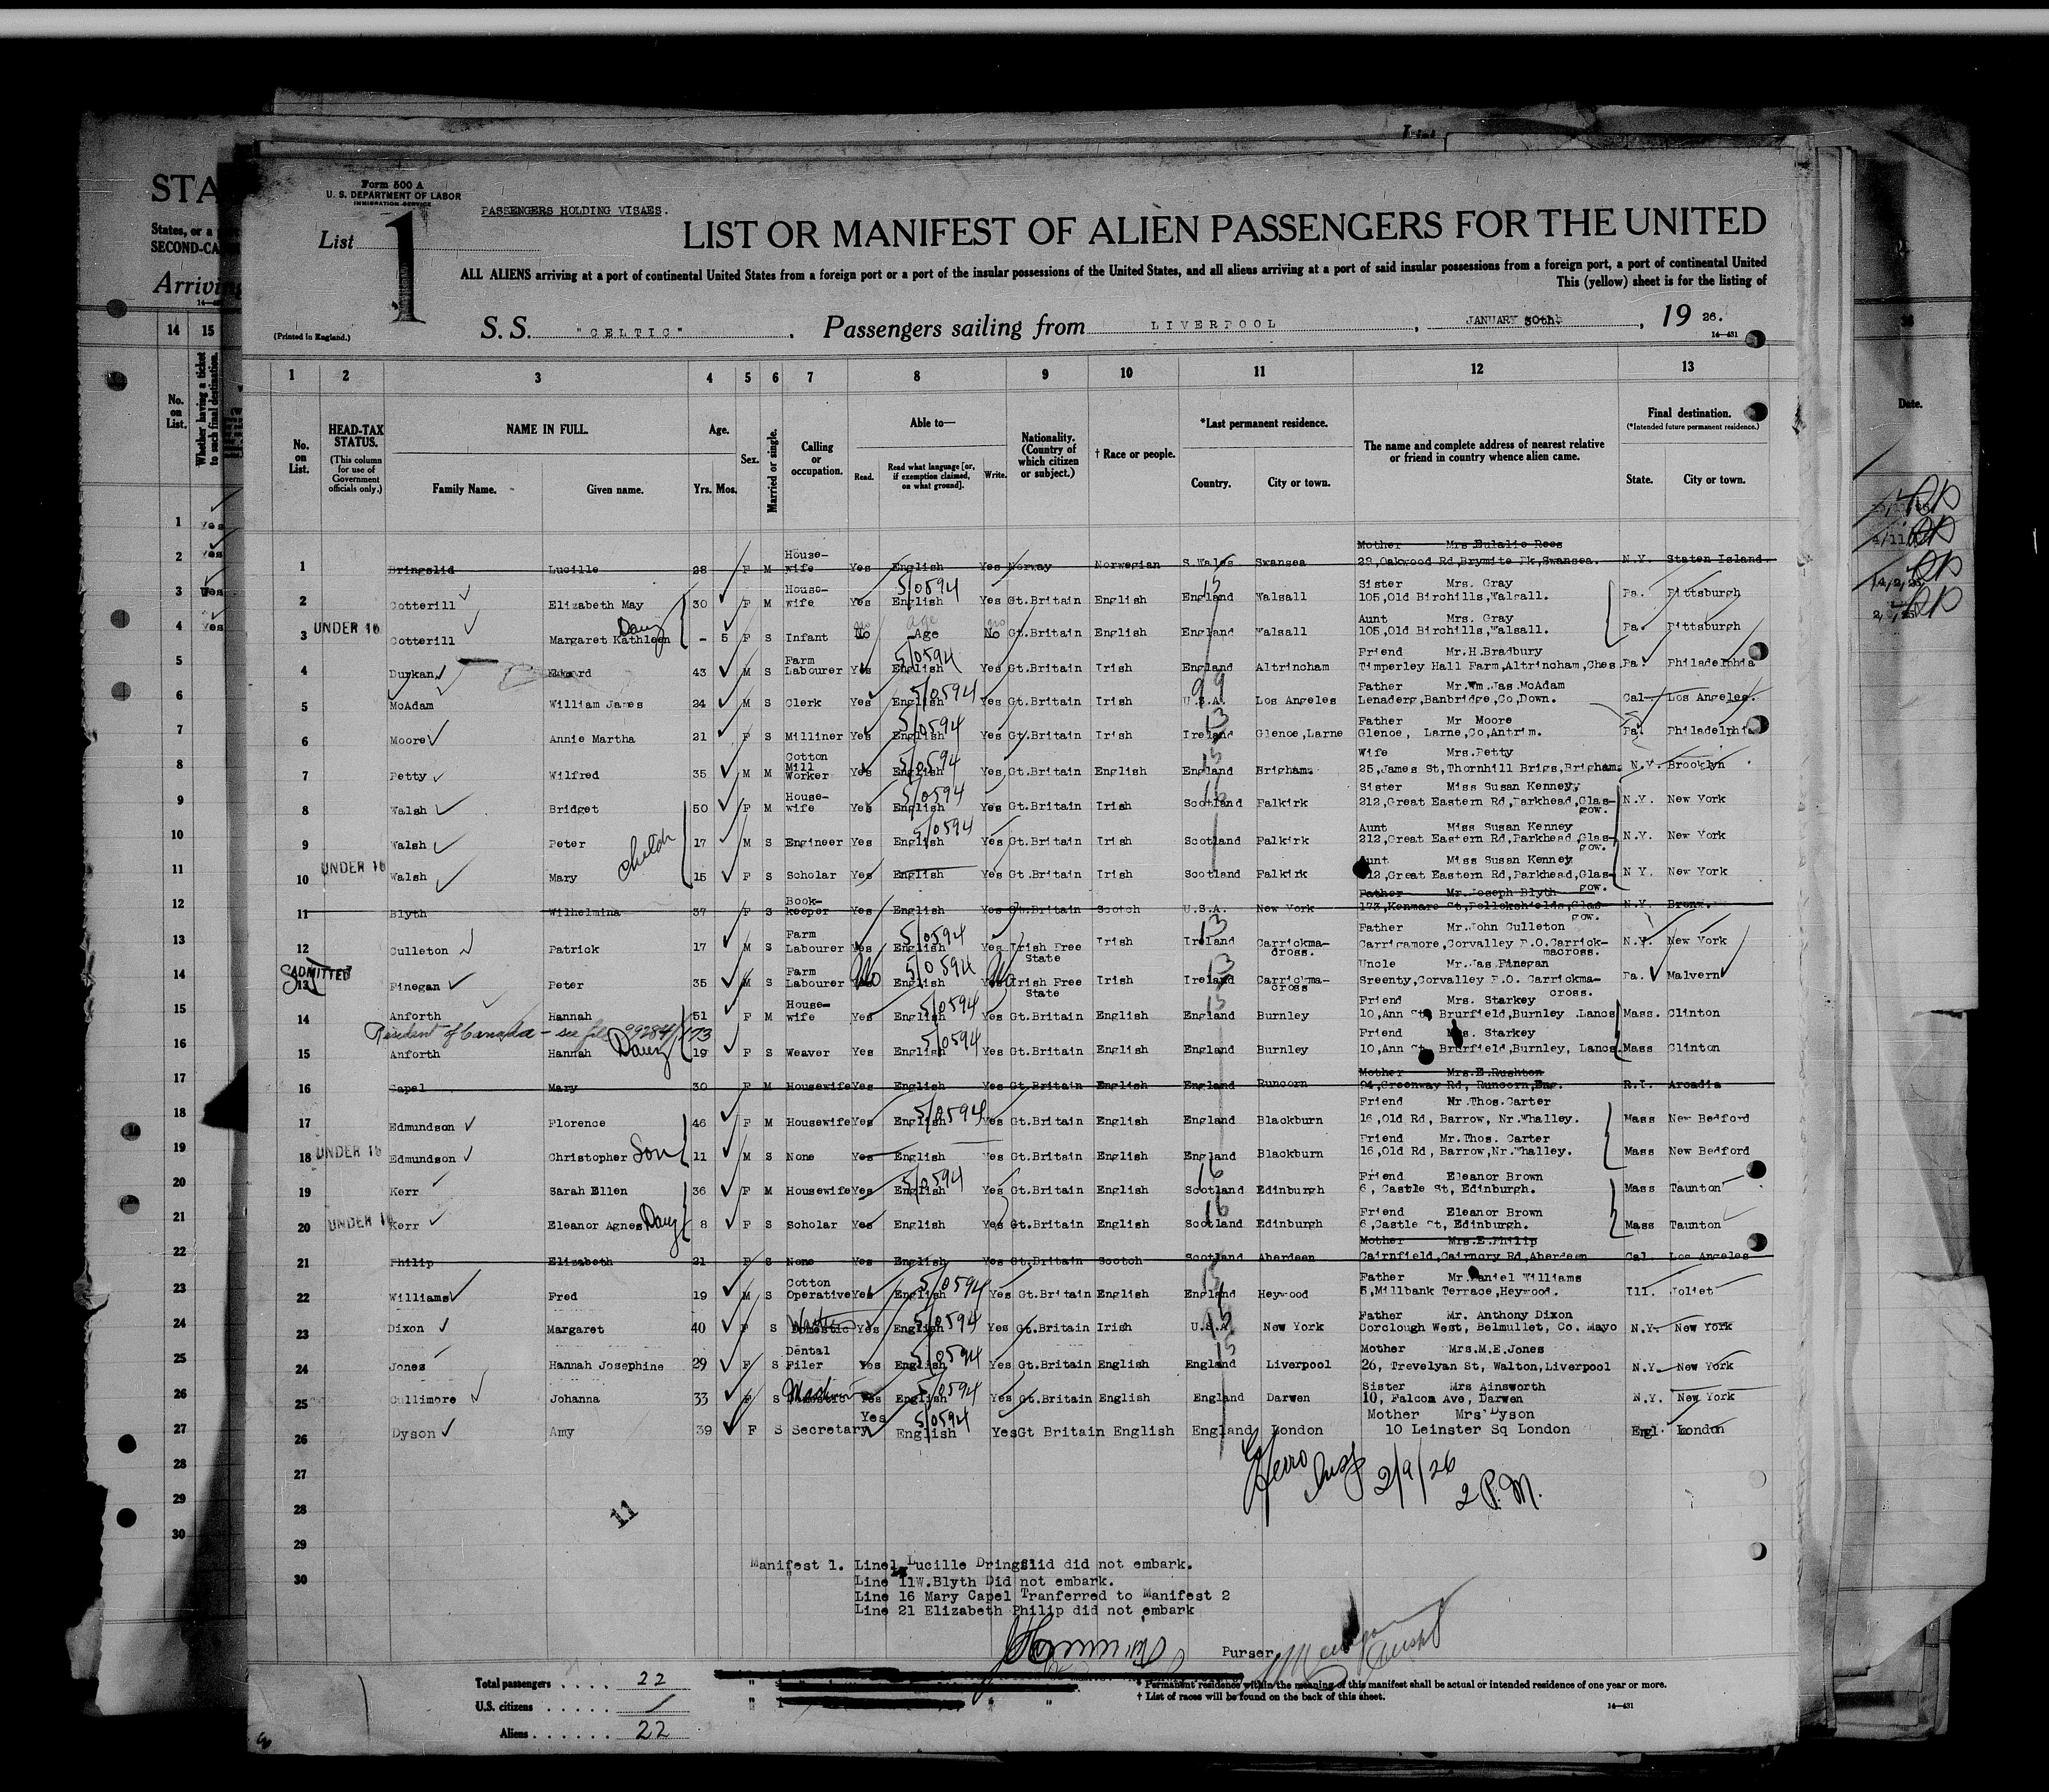 Form 500 A
U. S. DEPARTMENT OF LABOR
IMMIGRATION SERVICE
PASSENGERS HOLDING VISAES.
List 1
LIST OR MANIFEST OF ALIEN PASSENGERS FOR THE UNITED
ALL ALIENS arriving at a port of continental United States from a foreign port or a port of the insular possessions of the United States, and all aliens arriving at a port of said insular possessions from a foreign port, a port of continental United
This (yellow) sheet is for the listing of
(Printed in England.)
S. S. "CELTIC". Passengers sailing from LIVERPOOL, JANUARY 30th, 19 26.
14—431
1 2 3 4 5 6 7 8 9 10 11 12 13
No. on List.
HEAD-TAX STATUS.
(This column for use of Government officials only.)
NAME IN FULL.
Family Name. Given name.
Age.
Yrs. Mos.
Sex.
Married or single.
Calling or occupation.
Able to—
Read. Read what language [or, if exemption claimed, on what ground]. Write.
Nationality. (Country of which citizen or subject.)
† Race or people.
*Last permanent residence.
Country. City or town.
The name and complete address of nearest relative or friend in country whence alien came.
Final destination.
(*Intended future permanent residence.)
State. City or town.
1 Dringslid Lucille 28 F M House-wife Yes English Yes Norway Norwegian S.Wales Swansea Mother Mrs Eulalie Rees 29,Oakwood Rd,Brymite Pk,Swansea. N.Y. Staten Island
2 Cotterill Elizabeth May 30 F M House-wife Yes English 5/0594 Yes Gt.Britain English England Walsall Sister Mrs. Gray 105,Old Birchills,Walsall. Pa. Pittsburgh
UNDER 16
3 Cotterill Margaret Kathleen Daug - 5 F S Infant No Age No Gt.Britain English England Walsall Aunt Mrs. Gray 105,Old Birchills,Walsall. Pa. Pittsburgh
4 Durkan Edward 43 M S Farm Labourer Yes English 5/0594 Yes Gt.Britain Irish England Altrincham Friend Mr.H.Bradbury Timperley Hall Farm,Altrincham,Ches. Pa. Philadelphia
5 McAdam William James 24 M S Clerk Yes English 5/0594 Yes Gt.Britain Irish U.S.A. 99 Los Angeles Father Mr.Wm.Jas.McAdam Lenaderg,Banbridge,Co,Down. Cal Los Angeles.
6 Moore Annie Martha 21 F S Milliner Yes English 5/0594 Yes Gt.Britain Irish Ireland 13 Glenoe,Larne Father Mr Moore Glenoe, Larne,Co,Antrim. Pa. Philadelphia
7 Petty Wilfred 35 M M Cotton Mill Worker Yes English 5/0594 Yes Gt.Britain English England Brighams Wife Mrs.Petty 25,James St,Thornhill Brigs,Brighams N.Y. Brooklyn
8 Walsh Bridget 50 F M House-wife Yes English 5/0594 Yes Gt.Britain Irish Scotland Falkirk Sister Miss Susan Kenney, 212,Great Eastern Rd,Parkhead,Glas-gow. N.Y. New York
9 Walsh Peter 17 M S Engineer Yes English 5/0594 Yes Gt.Britain Irish Scotland Falkirk Aunt Miss Susan Kenney 212,Great Eastern Rd,Parkhead,Glas-gow. N.Y. New York
UNDER 16
10 Walsh Mary 15 F S Scholar Yes English Yes Gt.Britain Irish Scotland Falkirk Aunt Miss Susan Kenney 212,Great Eastern Rd,Parkhead,Glas-gow. N Y. New York
11 Blyth Wilhelmina 37 F S Book-keeper Yes English Yes Gt.Britain Scotch U.S.A. New York Father Mr.Joseph Blyth 173,Kenmare St,Pollokshields,Glas-gow. N.Y. Bronx.
12 Culleton Patrick 17 M S Farm Labourer Yes English 5/0594 Yes Irish Free State Irish Ireland 13 Carrickma-cross. Father Mr.John Culleton Carrigamore,Corvalley P.O.Carrick-macross. N.Y. New York
ADMITTED
13 Finegan Peter 35 M S Farm Labourer No English 5/0594 Irish Free State Irish Ireland 13 Carrickma-cross Uncle Mr.Jas Finegan Sreenty,Corvalley P.O. Carrickma-cross. Pa. Malvern
14 Anforth Hannah 51 F M House-wife Yes English 5/0594 Yes Gt.Britain English England Burnley Friend Mrs. Starkey 10,Ann St, Brurfield,Burnley .Lancs Mass. Clinton
Resident of Canada - see file 99284/173
15 Anforth Hannah Daug 19 F S Weaver Yes English 5/0594 Yes Gt.Britain English England Burnley Friend Mrs. Starkey 10,Ann St, Brurfield,Burnley, Lancs. Mass Clinton
16 Capel Mary 30 F M Housewife Yes English Yes Gt.Britain English England Runcorn Mother Mrs.E.Rushton 94,Greenway Rd, Runcorn,Eng. R.I. Arcadia
17 Edmundson Florence 46 F M Housewife Yes English 5/0594 Yes Gt.Britain English England Blackburn Friend Mr.Thos.Carter 16,Old Rd, Barrow, Nr.Whalley. Mass New Bedford
UNDER 16
18 Edmundson Christopher Son 11 M S None Yes English Yes Gt.Britain English England Blackburn Friend Mr.Thos. Carter 16,Old Rd, Barrow,Nr.Whalley. Mass New Bedford
19 Kerr Sarah Ellen 36 F M Housewife Yes English 5/0594 Yes Gt.Britain English Scotland 16 Edinburgh Friend Eleanor Brown 6, Castle St, Edinburgh. Mass Taunton
UNDER 16
20 Kerr Eleanor Agnes Daug 8 F S Scholar Yes English Yes Gt.Britain English Scotland 16 Edinburgh Friend Eleanor Brown 6,Castle St, Edinburgh. Mass Taunton
21 Philip Elizabeth 21 F S None Yes English Yes Gt.Britain Scotch Scotland Aberdeen Mother Mrs.E.Philip Cairnfield,Cairncry Rd,Aberdeen Cal. Los Angeles
22 Williams Fred 19 M S Cotton Operative Yes English 5/0594 Yes Gt.Britain English England Heywood Father Mr.Daniel Williams 5,Millbank Terrace,Heywood. Ill. Joliet
23 Dixon Margaret 40 F S Domestic Yes English 5/0594 Yes Gt.Britain Irish U.S.A. New York Father Mr. Anthony Dixon Corclough West, Belmullet, Co. Mayo N.Y. New York
24 Jones Hannah Josephine 29 F S Dental Filer Yes English 5/0594 Yes Gt.Britain English England Liverpool Mother Mrs.M.E.Jones 26, Trevelyan St, Walton,Liverpool N.Y. New York
25 Cullimore Johanna 33 F S Domestic Yes English 5/0594 Yes Gt.Britain English England Darwen Sister Mrs Ainsworth 10, Falcom Ave, Darwen N.Y. New York
26 Dyson Amy 39 F S Secretary Yes English 5/0594 Yes Gt Britain English England London Mother Mrs Dyson 10 Leinster Sq London Engl. London
27
28
29
30
2/9/26
2 P.M.
11
Manifest 1. Line 1 Lucille Dringslid did not embark.
Line 11W.Blyth Did not embark.
Line 16 Mary Capel Tranferred to Manifest 2
Line 21 Elizabeth Philip did not embark
Purser
Total passengers . . . . 22
U.S. citizens . . . . . . /
Aliens . . . . . . 22
* Permanent residence within the meaning of this manifest shall be actual or intended residence of one year or more.
† List of races will be found on the back of this sheet.
14—431
STA
States, or a
SECOND-CA
Arriving
14 15
No. on List.
Whether having a ticket to such final destination.
1 Yes
2 Yes
3 Yes
4 Yes
5
6
7
8
9
10
11
12
13
14
15
16
17
18
19
20
21
22
23
24
25
26
27
28
29
30
Date.